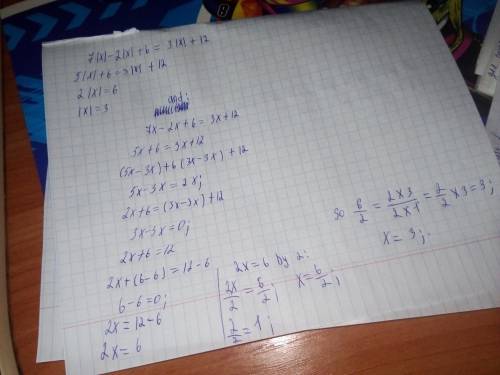 7|x|-2|x|+6 = 3|x|+12
5|x|+6=3|x|+12
2|x|=6
|x|=3
and:
7x-2x+6=3x+12
5x+6=3x+12
(5x-3x)+6(3x-3x)+12
5x-3x=2x;
2x+6=(3x-3x)+12
3x-3x=0;
2x+6=12
2x+(6-6)=12-6
6-6=0;
2x=12-6
2x=6
2x=6 by 2:
2x/2=6/2;
x=6/2;
2/2=1;
so 6/2=2x3/2x1=2/2x3=3;
x=3;